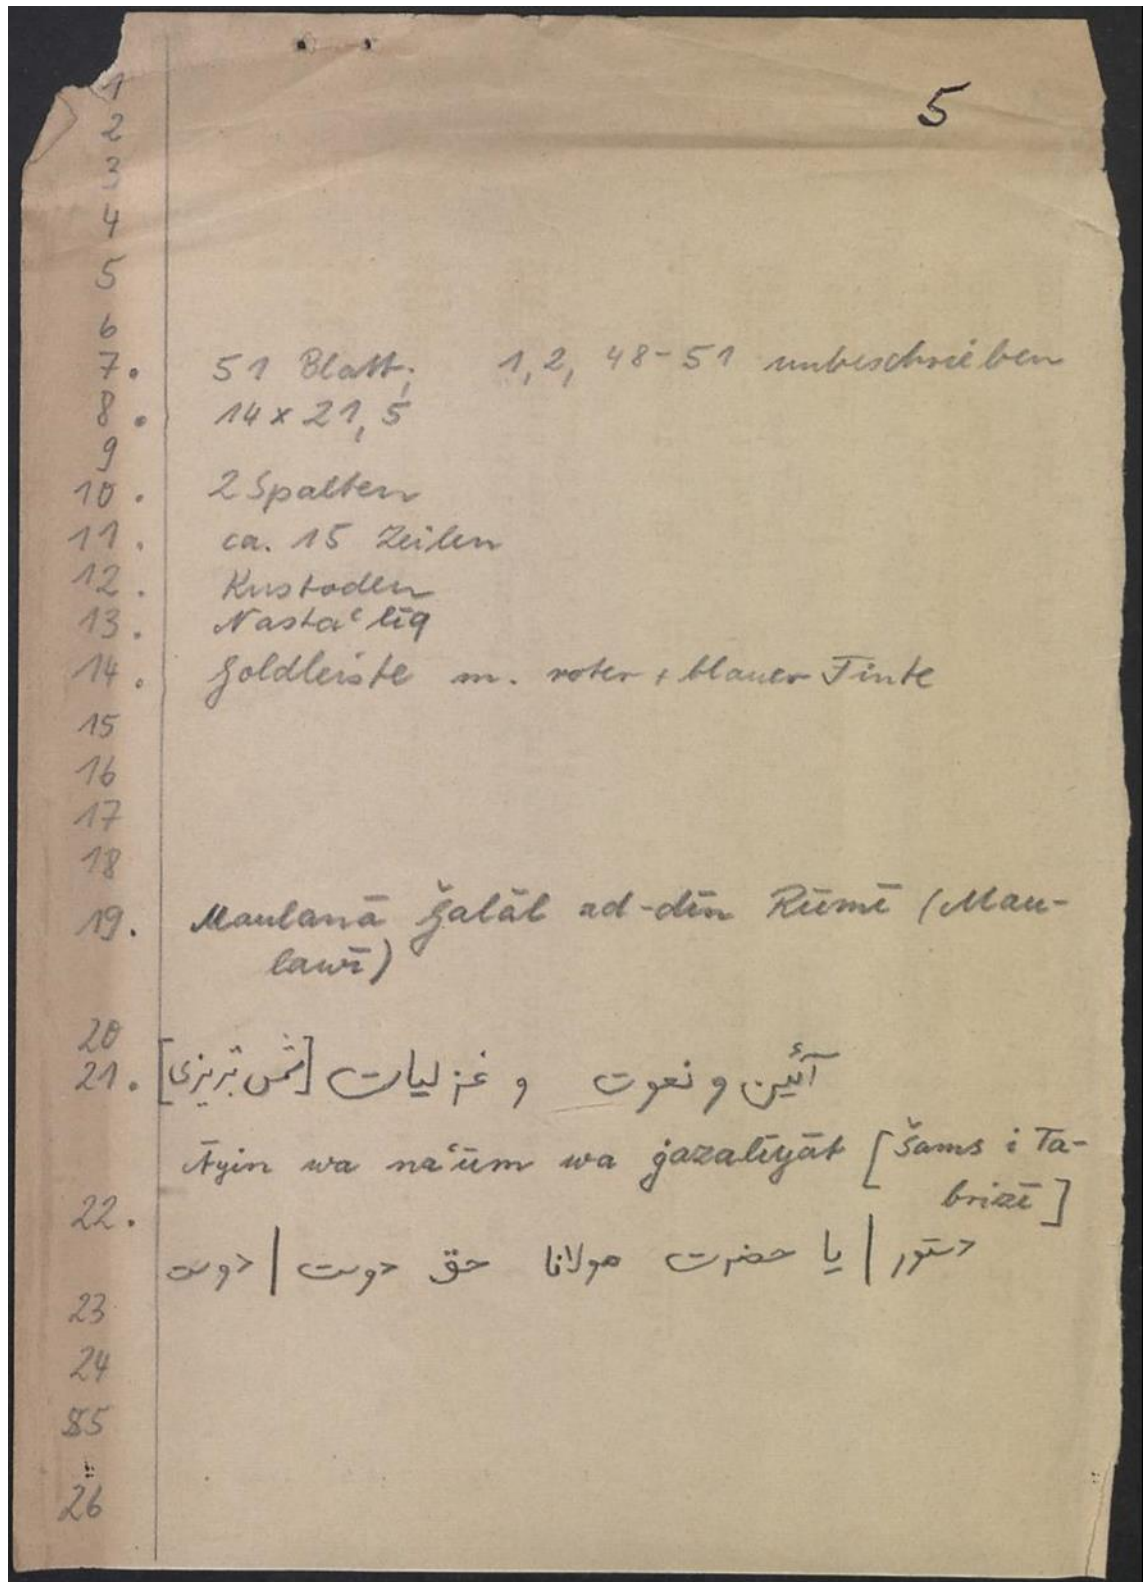 5
1
2
3
4
5
6
7. 51 Blatt; 1, 2, 48-51 unbeschrieben
8. 14 x 21,5
9
10. 2 Spalten
11. ca. 15 Zeilen
12. Kustoden
13. Nastaʿlīq
14. Goldleiste m. roter + blauer Tinte
15
16
17
18
19. Maulanā Ǧalāl ad-dīn Rūmī (Mau-
lawī)
20
21. آئين و نعوت و غزليات [شمس تبريزى]
Āyin wa naʿūm wa ġazalīyāt [Šams i Ta-
brizī]
22.
دستور | يا حضرت مولانا حق دوست | دوست
23
24
85
26